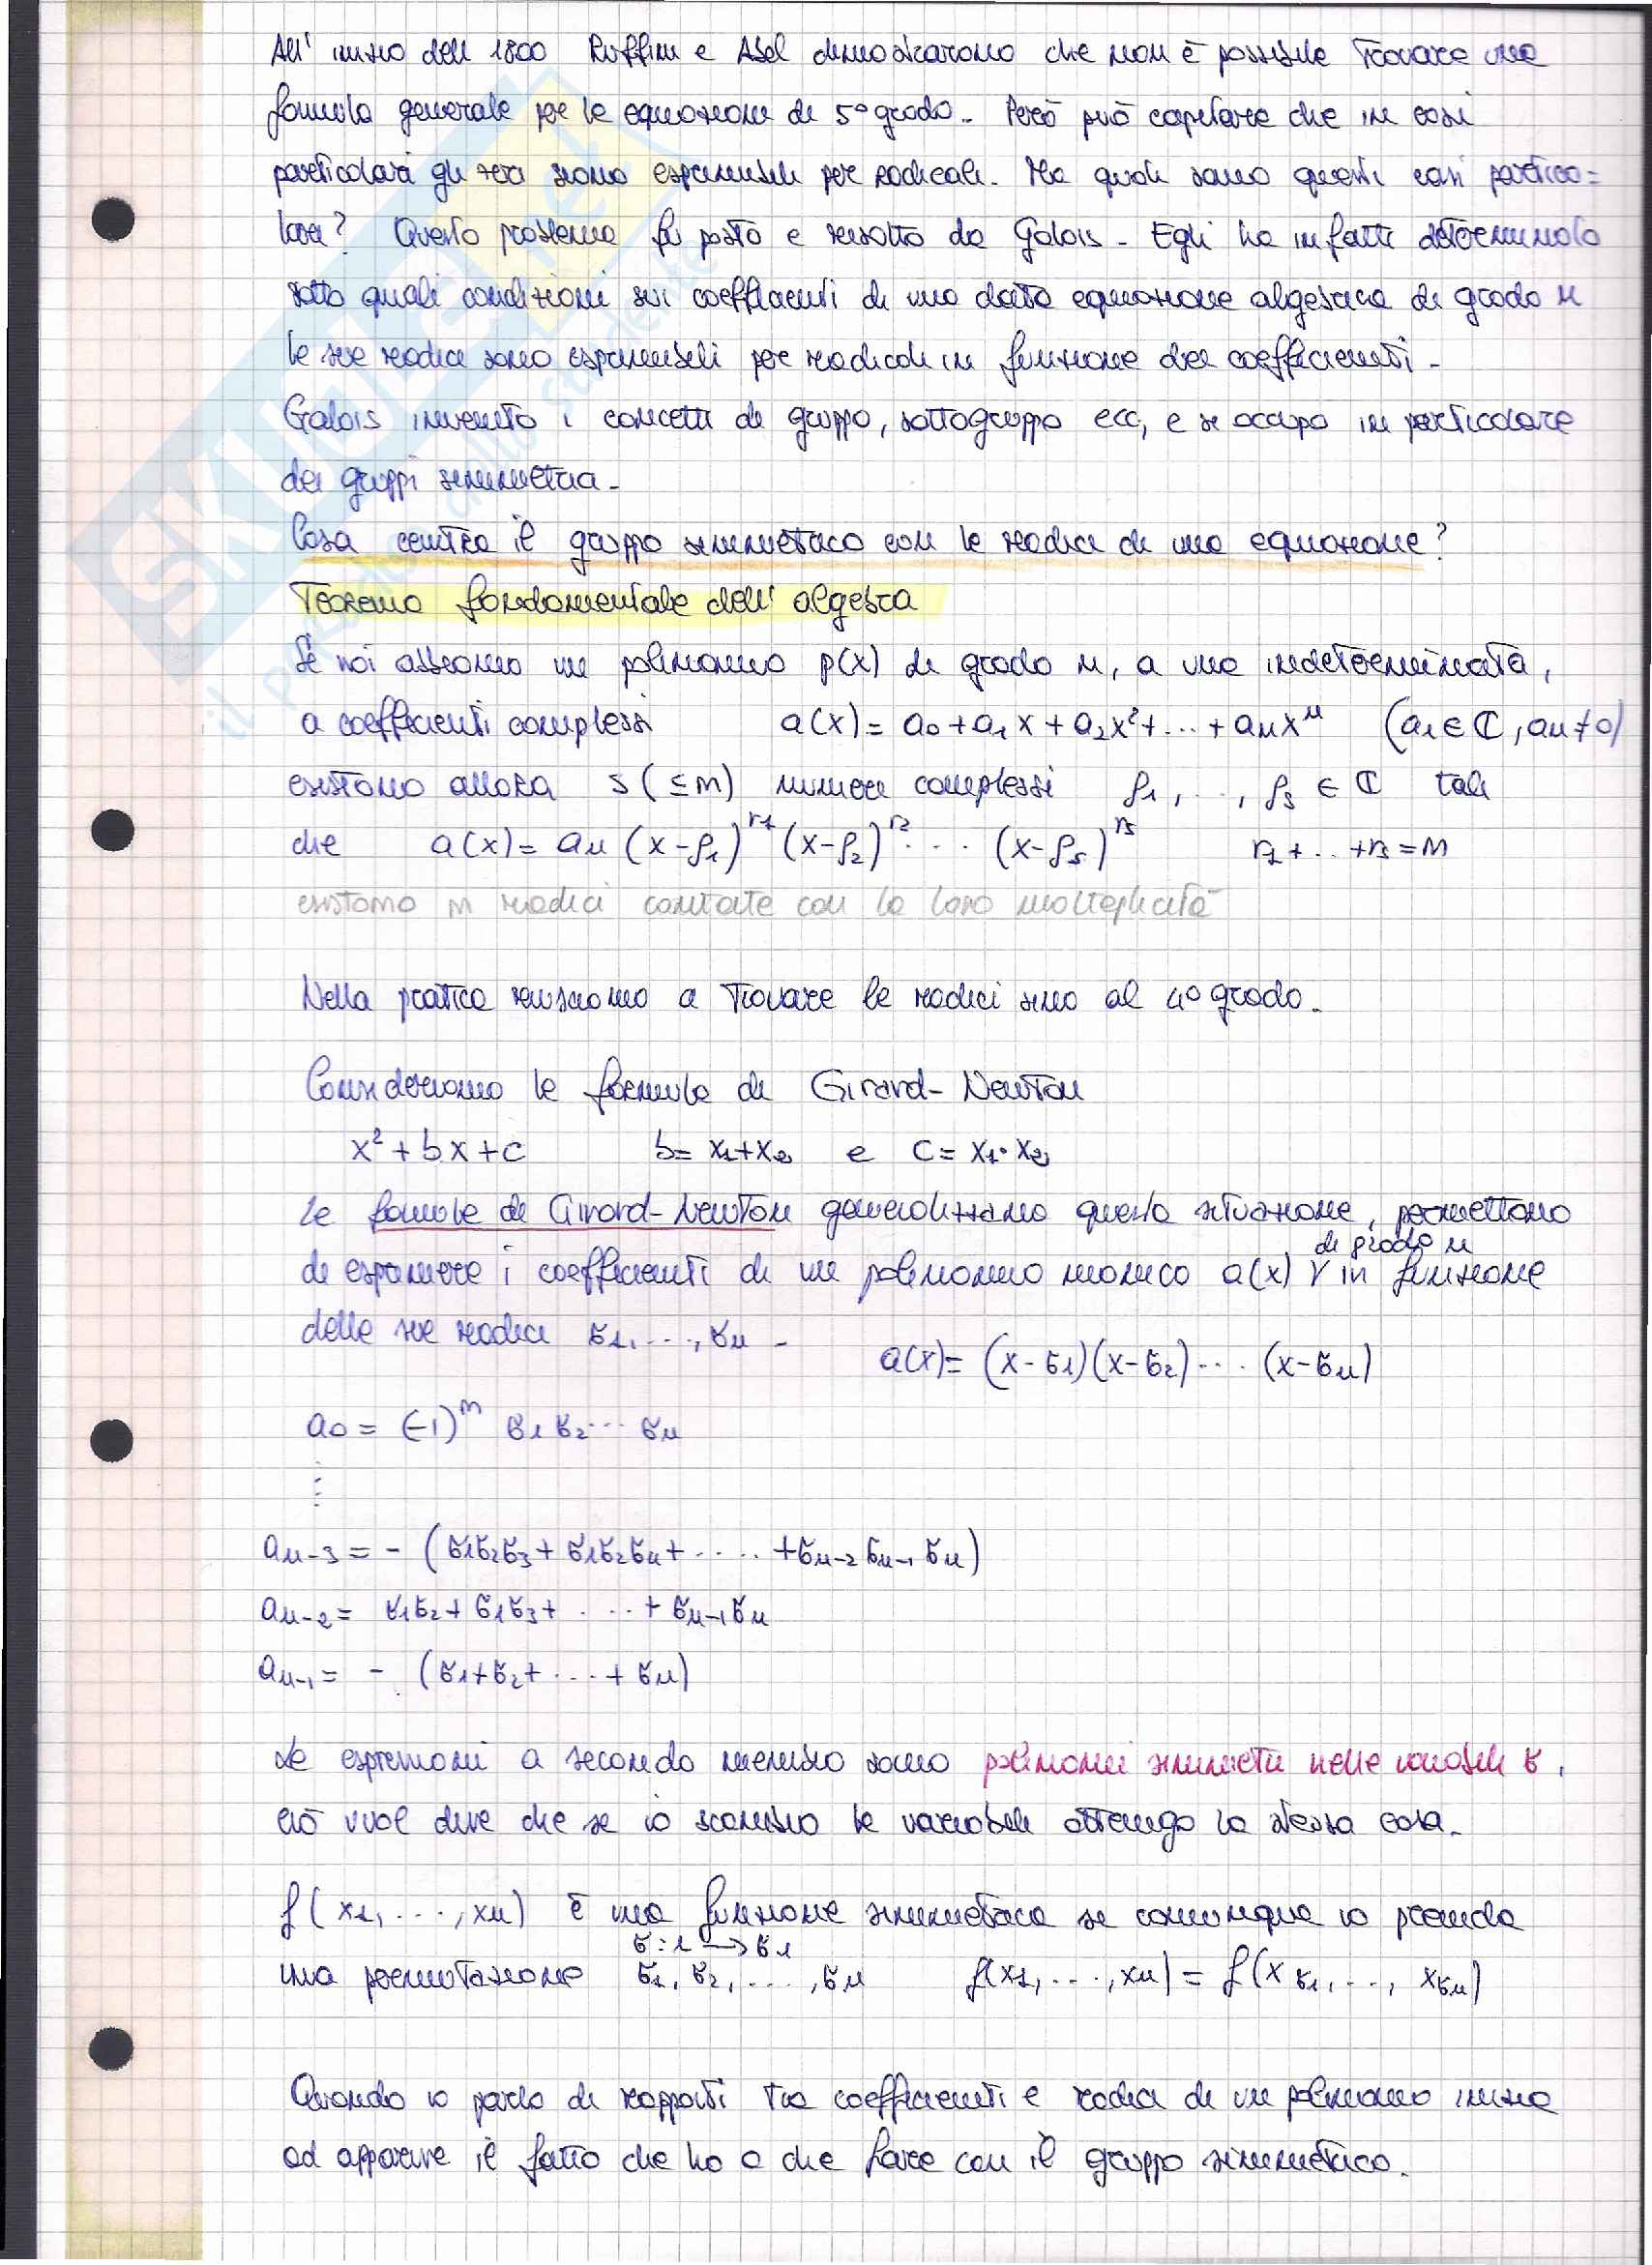 All' inizio dell 1800 Ruffini e Abel dimostrarono che non è possibile trovare una
formula generale per le equazioni di 5° grado. Però può capitare che in casi
particolari gli zeri siano esprimibili per radicali. Ma quali sono questi casi partico=
lari? Questo problema fu posto e risolto da Galois - Egli ha infatti determinato
sotto quali condizioni sui coefficienti di una data equazione algebrica di grado n
le sue radici sono esprimibili per radicali in funzione dei coefficienti -
Galois inventò i concetti di gruppo, sottogruppo ecc, e si occupò in particolare
dei gruppi simmetrici -
Cosa centra il gruppo simmetrico con le radici di una equazione?
Teorema fondamentale dell' algebra
Se noi abbiamo un polinomio p(x) di grado n, a una indeterminata,
a coefficienti complessi a(x) = a0 + a1 x + a2 x² + ... + an xⁿ (ai ∈ ℂ, an ≠ 0)
esistono allora s (≤ n) numeri complessi ρ1, ..., ρs ∈ ℂ tali
che a(x) = an (x-ρ1)^r1 (x-ρ2)^r2 .... (x-ρs)^rs r1 + .. + rs = n
esistono n radici contate con la loro molteplicità
Nella pratica riusciamo a trovare le radici sino al 4° grado.
Consideriamo le formule di Girard-Newton
x² + bx + c b = x1+x2 e c = x1·x2
Le formule di Girard-Newton generalizzano questa situazione, permettono
di grado n
di esprimere i coefficienti di un polinomio monico a(x) γ in funzione
delle sue radici σ1, ..., σn - a(x) = (x-σ1)(x-σ2) .... (x-σn)
a0 = (-1)ⁿ σ1 σ2 ... σn
⋮
an-3 = - (σ1σ2σ3 + σ1σ2σ4 + ..... + σn-2 σn-1 σn)
an-2 = σ1σ2 + σ1σ3 + .... + σn-1 σn
an-1 = - (σ1+σ2+ .... + σn)
Le espressioni a secondo membro sono polinomi simmetrici nelle variabili σ,
ciò vuol dire che se io scambio le variabili ottengo la stessa cosa.
f(x1, ..., xn) è una funzione simmetrica se comunque io prenda
σ: i → σi
una permutazione σ1, σ2, ..., σn f(x1, ..., xn) = f(xσ1, ..., xσn)
Quando io parlo di rapporti tra coefficienti e radici di un polinomio inizia
ad apparire il fatto che ho a che fare con il gruppo simmetrico.
SKUOLA.net